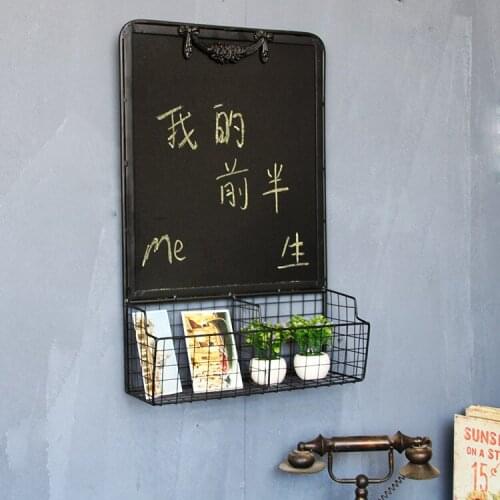 我的
前半
me 生
SUNS
ON A ST
15